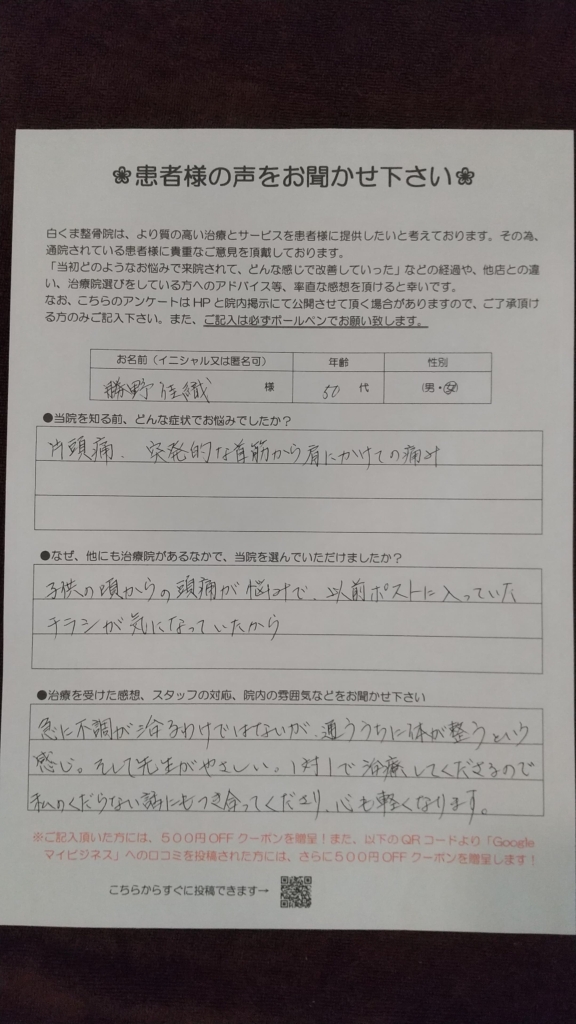 ❀患者様の声をお聞かせ下さい❀
白くま整骨院は、より質の高い治療とサービスを患者様に提供したいと考えております。その為、
通院されている患者様に貴重なご意見を頂戴しております。
「当初どのようなお悩みで来院されて、どんな感じで改善していった」などの経過や、他店との違
い、治療院選びをしている方へのアドバイス等、率直な感想を頂けると幸いです。
なお、こちらのアンケートはHPと院内掲示にて公開させて頂く場合がありますので、ご了承頂け
る方のみご記入下さい。また、ご記入は必ずボールペンでお願い致します。
お名前（イニシャル又は匿名可） 年齢 性別
勝野佳織 様 50 代 （男・女）
●当院を知る前、どんな症状でお悩みでしたか？
片頭痛、突発的な首筋から肩にかけての痛み
●なぜ、他にも治療院があるなかで、当院を選んでいただけましたか？
子供の頃からの頭痛が悩みで、以前ポストに入っていた
チラシが気になっていたから
●治療を受けた感想、スタッフの対応、院内の雰囲気などをお聞かせ下さい
急に不調が治るわけではないが、通ううちに体が整うという
感じ。そして先生がやさしい。1対1で治療してくださるので
私のくだらない話にもつき合ってくださり、心も軽くなります。
※ご記入頂いた方には、500円OFFクーポンを贈呈！また、以下のQRコードより「Google
マイビジネス」への口コミを投稿された方には、さらに500円OFFクーポンを贈呈します！
こちらからすぐに投稿できます→